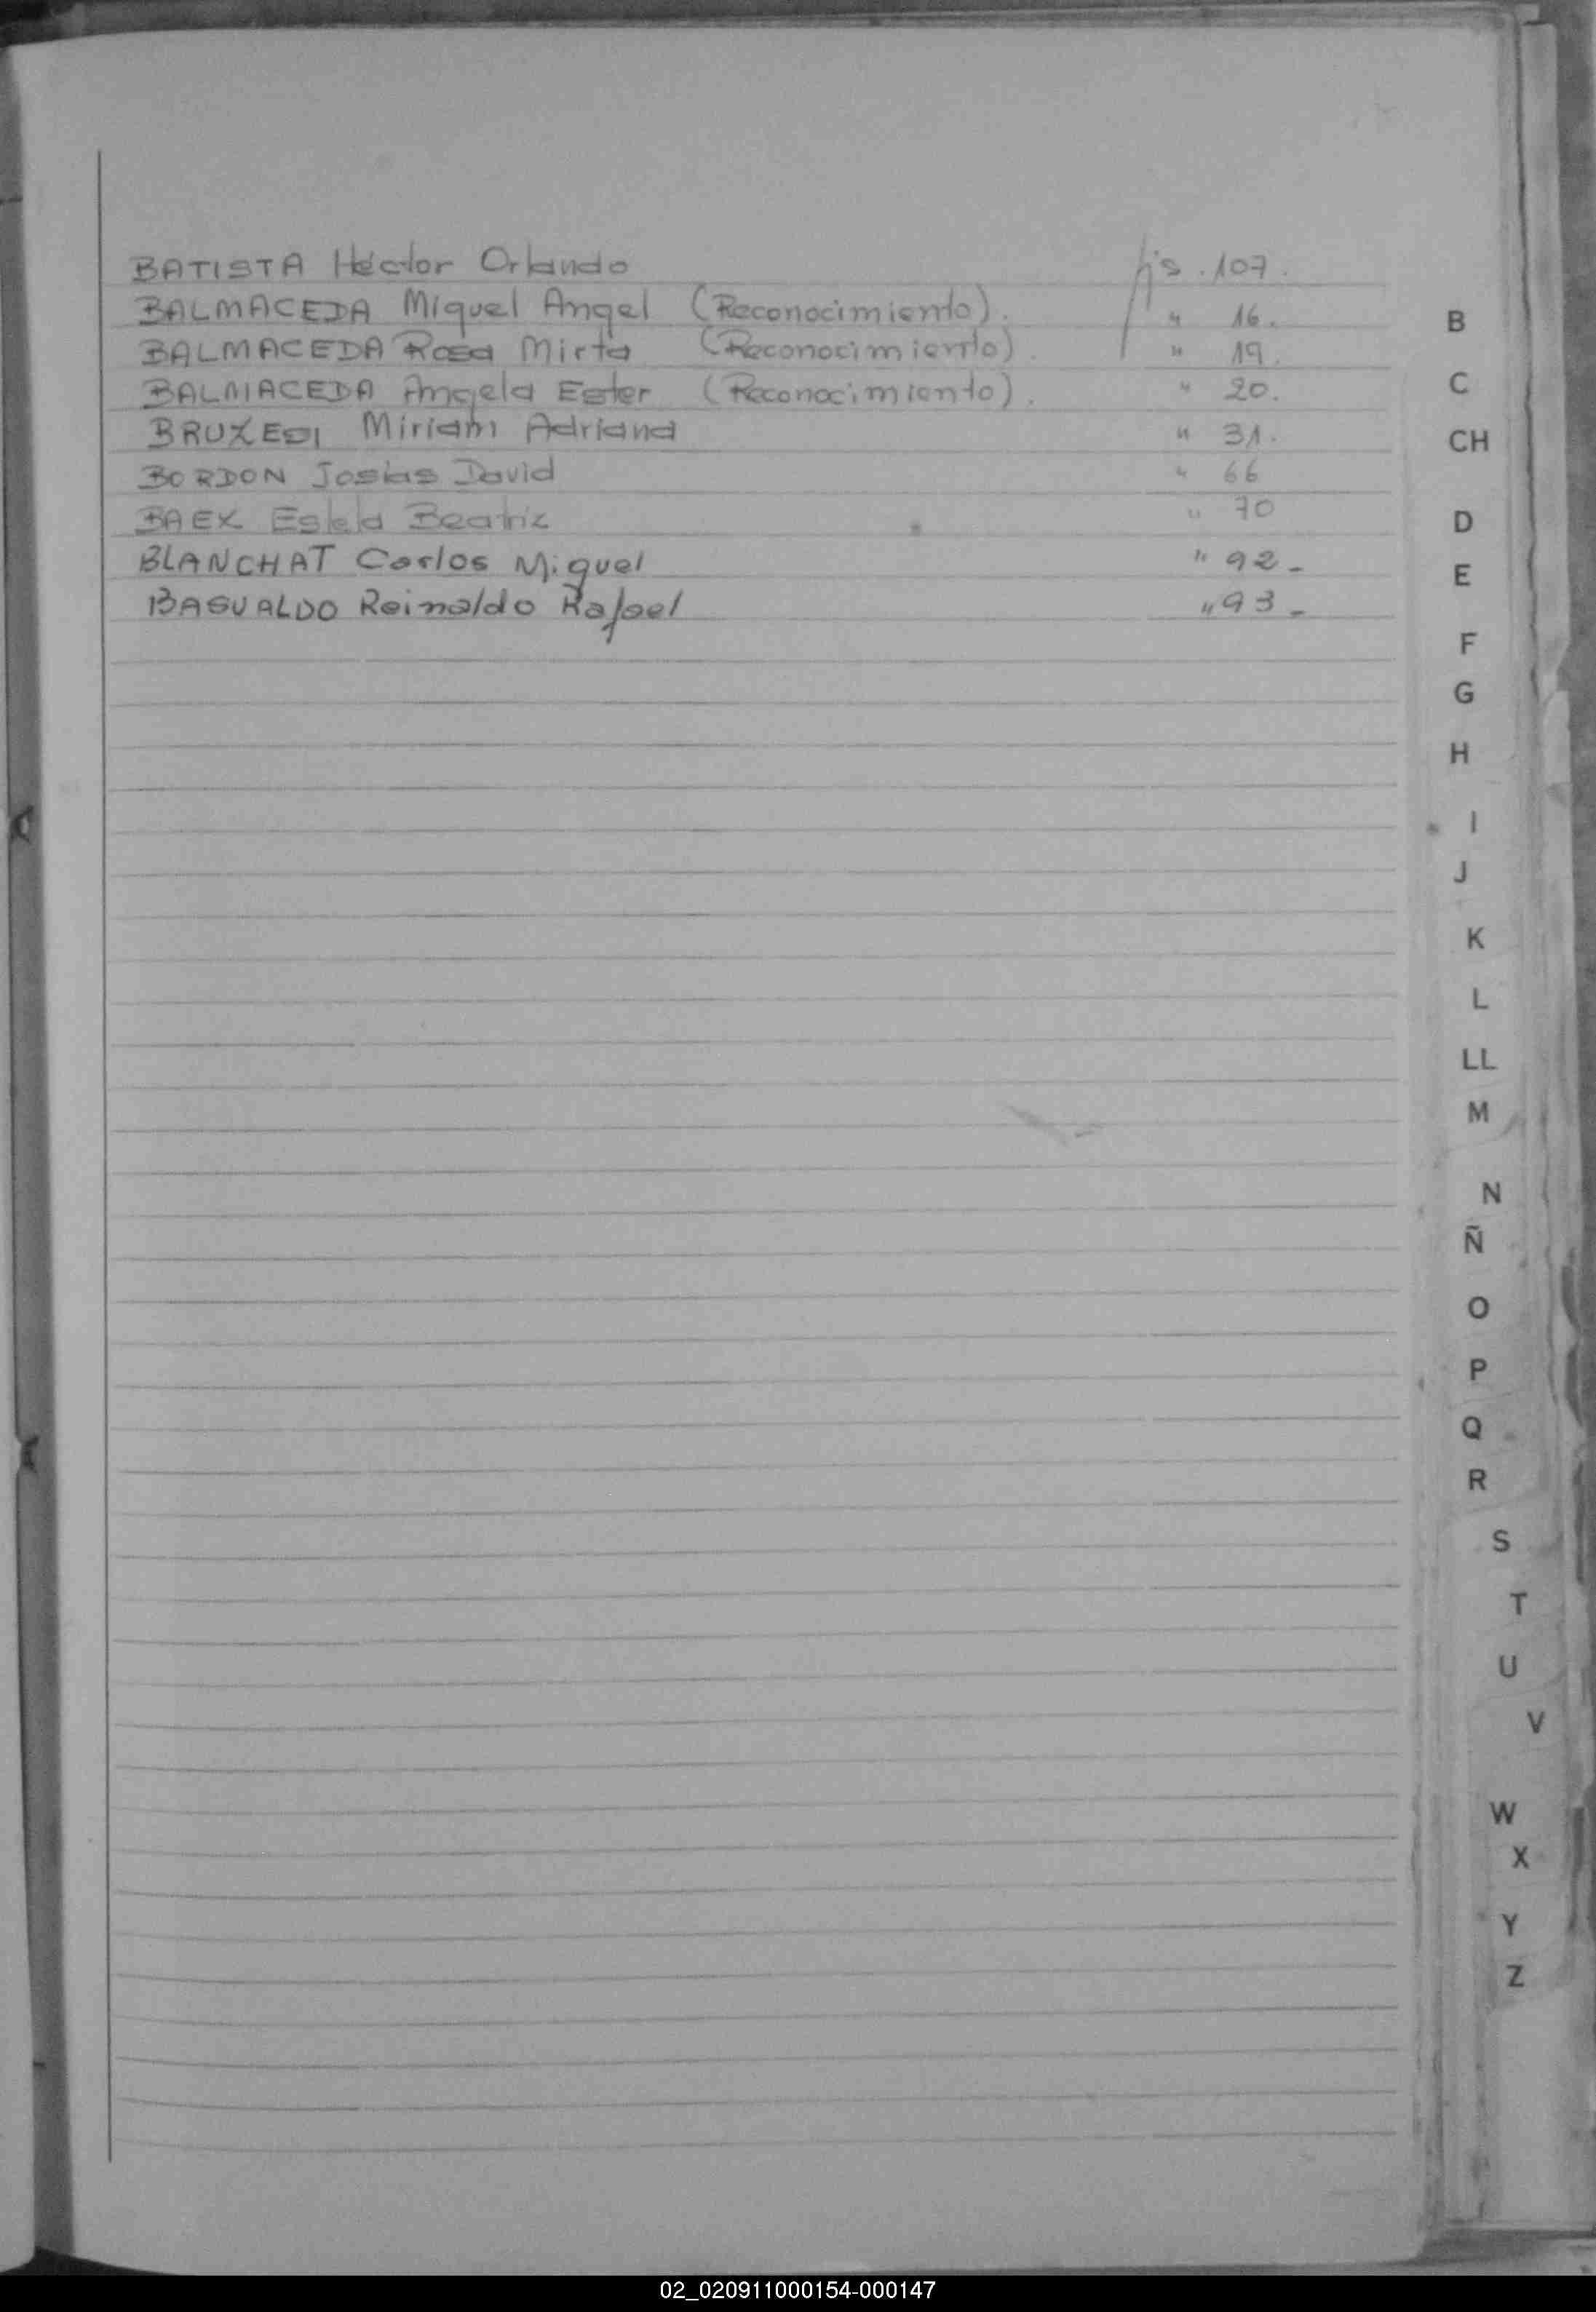 BATISTA Héctor Orlando fjs. 107.
BALMACEDA Miguel Angel (Reconocimiento). " 16.
BALMACEDA Rosa Mirta (Reconocimiento). " 19.
BALMACEDA Angela Ester (Reconocimiento). " 20.
Miriam Adriana " 31.
BORDON Josías David " 66
BAEX Estela Beatriz " 70
BLANCHAT Carlos Miguel " 92-
BASUALDO Reinaldo Rafael " 93-
B
C
CH
D
E
F
G
H
I
J
K
L
LL
M
N
Ñ
O
P
Q
R
S
T
U
V
W
X
Y
Z
02_020911000154-000147